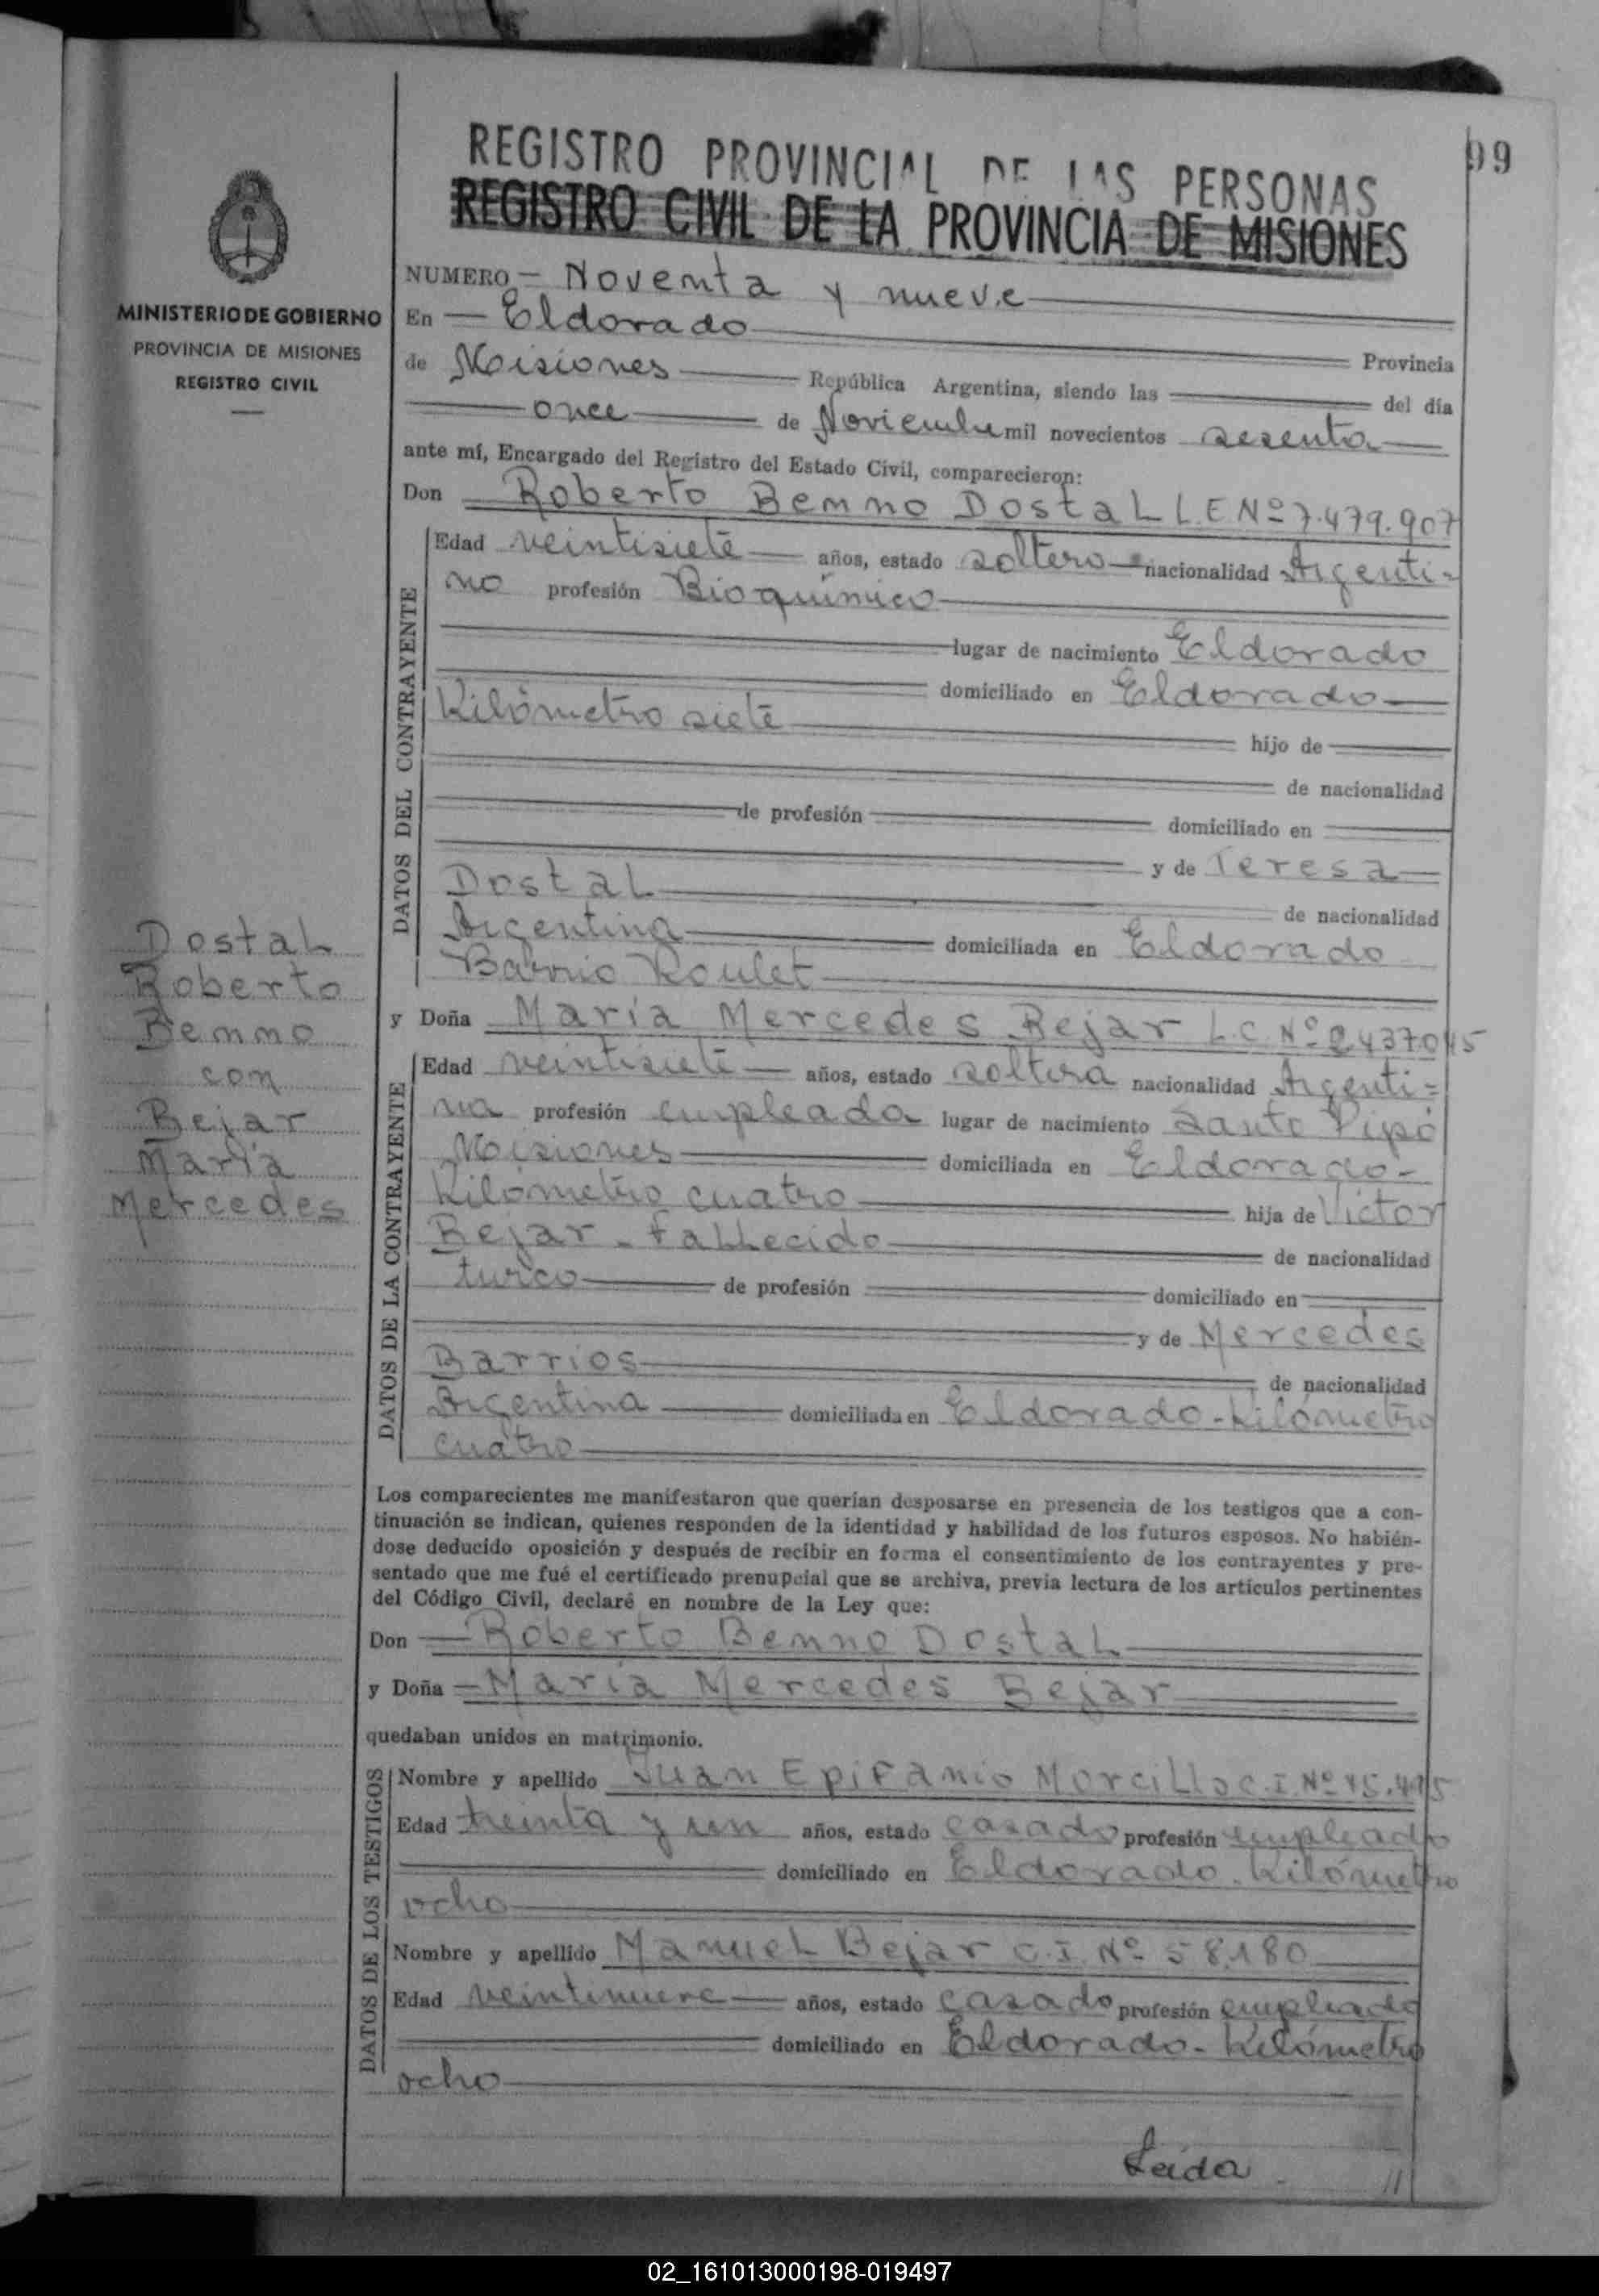 99
REGISTRO PROVINCIAL DE LAS PERSONAS
REGISTRO CIVIL DE LA PROVINCIA DE MISIONES
MINISTERIO DE GOBIERNO
PROVINCIA DE MISIONES
REGISTRO CIVIL
NUMERO Noventa y nueve
En Eldorado Provincia
de Misiones República Argentina, siendo las del día
once de Noviembre mil novecientos sesenta
ante mí, Encargado del Registro del Estado Civil, comparecieron:
Don Roberto Benno Dostal L.E Nº 7.479.907
DATOS DEL CONTRAYENTE
Edad veintisiete años, estado soltero nacionalidad Argenti=
no profesión Bioquímico
lugar de nacimiento Eldorado
domiciliado en Eldorado
Kilómetro siete hijo de
de nacionalidad
de profesión domiciliado en
y de Teresa
Dostal de nacionalidad
Argentina domiciliada en Eldorado
Barrio Roulet
Dostal
Roberto
Benno
con
Bejar
María
Mercedes
y Doña María Mercedes Bejar L.C. Nº 2437045
DATOS DE LA CONTRAYENTE
Edad veintisiete años, estado soltera nacionalidad Argenti=
na profesión empleada lugar de nacimiento Santo Pipó
Misiones domiciliada en Eldorado-
Kilómetro cuatro hija de Victor
Bejar - fallecido de nacionalidad
turco de profesión domiciliado en
y de Mercedes
Barrios de nacionalidad
Argentina domiciliada en Eldorado-Kilómetro
cuatro
Los comparecientes me manifestaron que querían desposarse en presencia de los testigos que a con-
tinuación se indican, quienes responden de la identidad y habilidad de los futuros esposos. No habién-
dose deducido oposición y después de recibir en forma el consentimiento de los contrayentes y pre-
sentado que me fué el certificado prenupcial que se archiva, previa lectura de los artículos pertinentes
del Código Civil, declaré en nombre de la Ley que:
Don Roberto Benno Dostal
y Doña María Mercedes Bejar
quedaban unidos en matrimonio.
DATOS DE LOS TESTIGOS
Nombre y apellido Juan Epifanio Morcillo C.I. Nº 45.475
Edad treinta y un años, estado casado profesión empleado
domiciliado en Eldorado - Kilómetro
ocho
Nombre y apellido Manuel Bejar C.I. Nº 58.180
Edad veintinueve años, estado casado profesión empleado
domiciliado en Eldorado - Kilómetro
ocho
Leída
//
02_161013000198-019497